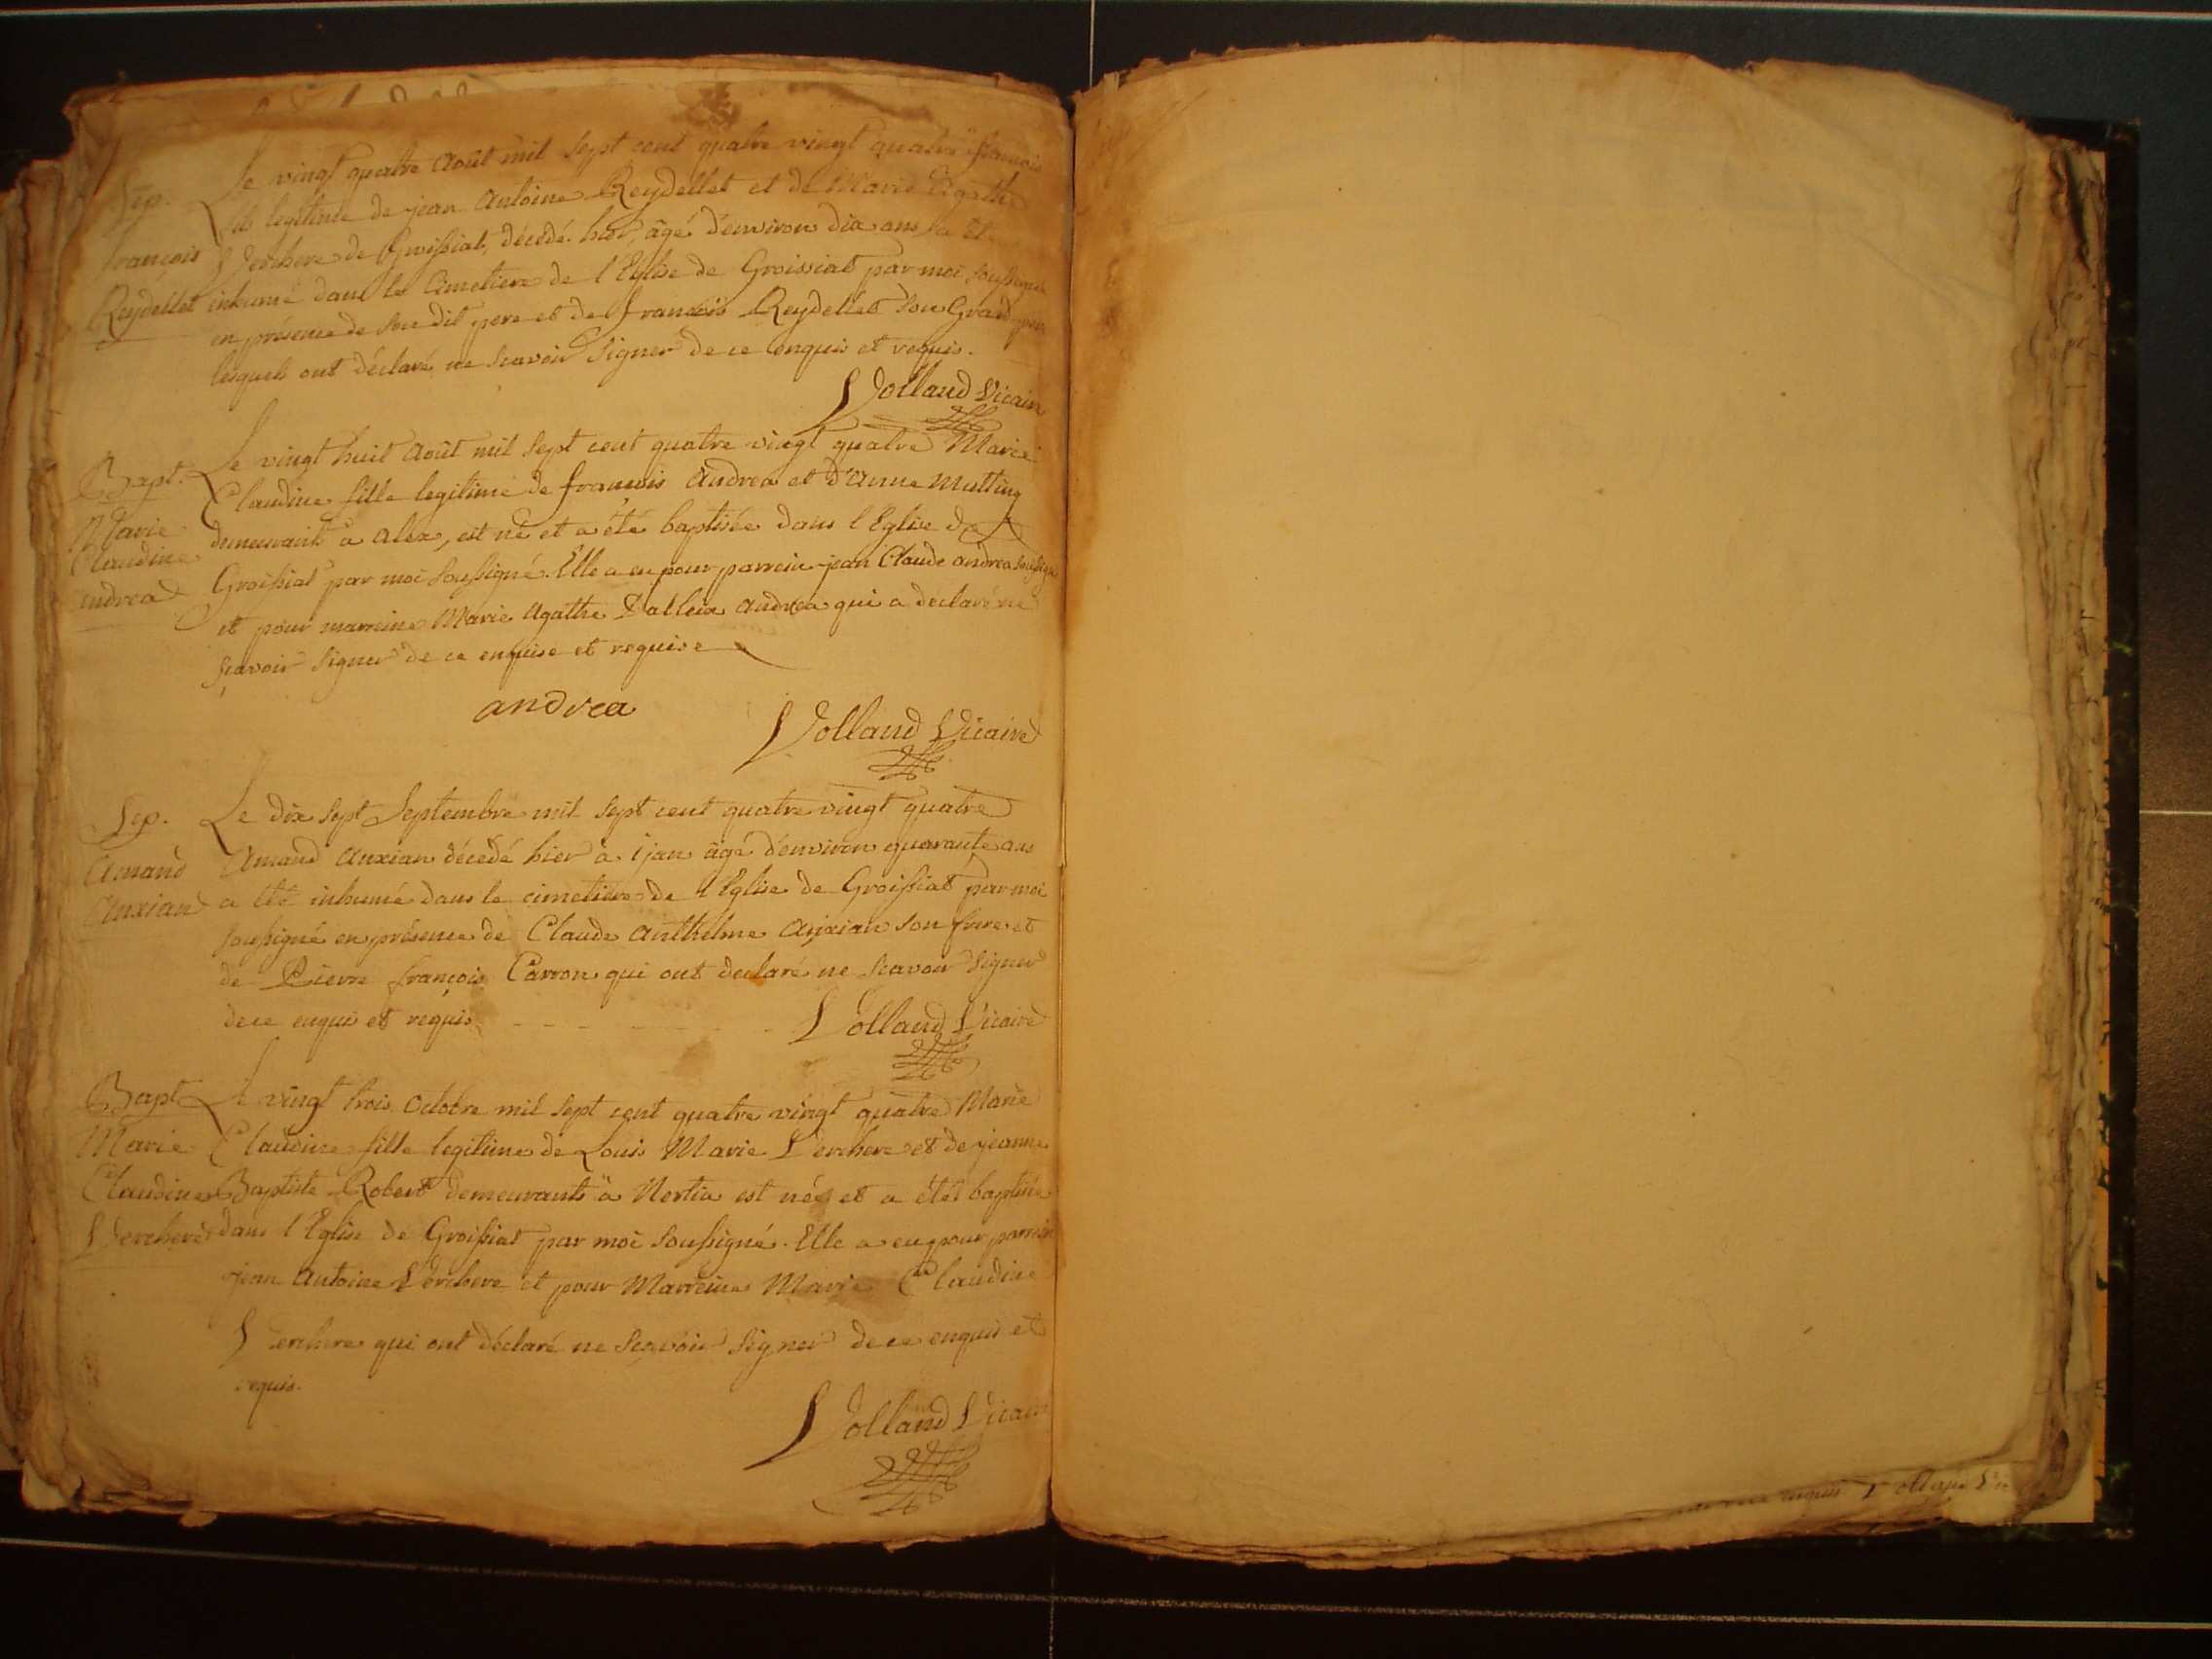 Sep.
françois
Reydellet
Le vingt quatre Août mil sept cent quatre vingt quatre françois
fils legitime de jean Antoine Reydellet et de Marie Agathe
Verchere de Groissiat, décédé hier, âgé d'environ dix ans a été
inhumé dans le Cimetiere de l'Eglise de Groissiat par moi soussigné
en présence de son dit pere et de francois Reydellet son Grand pere
lesquels ont déclaré ne scavoir signer de ce enquis et requis.
Volland Vicaire
Bapt.
Marie
Claudine
andrea
Le vingt huit Août mil sept cent quatre vingt quatre Marie
Claudine fille legitime de francois Andrea et d'Anne
demeurants à alex, est né et a été baptisée dans l'Eglise de
Groissiat par moi soussigné. Elle a eu pour parrein jean Claude andrea soussigné
et pour marreine Marie Agathe andrea qui a declaré ne
sçavoir signer de ce enquise et requise
andrea
Volland Vicaire
Sep.
Amand
Anxian
Le dix sept Septembre mil sept cent quatre vingt quatre
Amand Anxian décedé hier à ijan âgé d'environ quarante ans
a été inhumé dans le cimetiere de l'Eglise de Groissiat par moi
soussigné en présence de Claude Anthelme Anxian son frere et
de Pierre françois Carron qui ont declaré ne scavoir signer
de ce enquis et requis
Volland Vicaire
Bapt
Marie
Claudine
Verchere
Le vingt trois Octobre mil sept cent quatre vingt quatre Marie
Claudine fille legitime de Louis Marie Verchere et de jeanne
Baptiste Robert demeurants à Nertia est née et a étéé baptisée
dans l'Eglise de Groissiat par moi soussigné. Elle a eu pour parrein
jean Antoine Verchere et pour Marreine Marie Claudine
Verchere qui ont déclaré ne scavoir signer de ce enquis et
requis.
Volland Vicaire
requis. Volland Vic